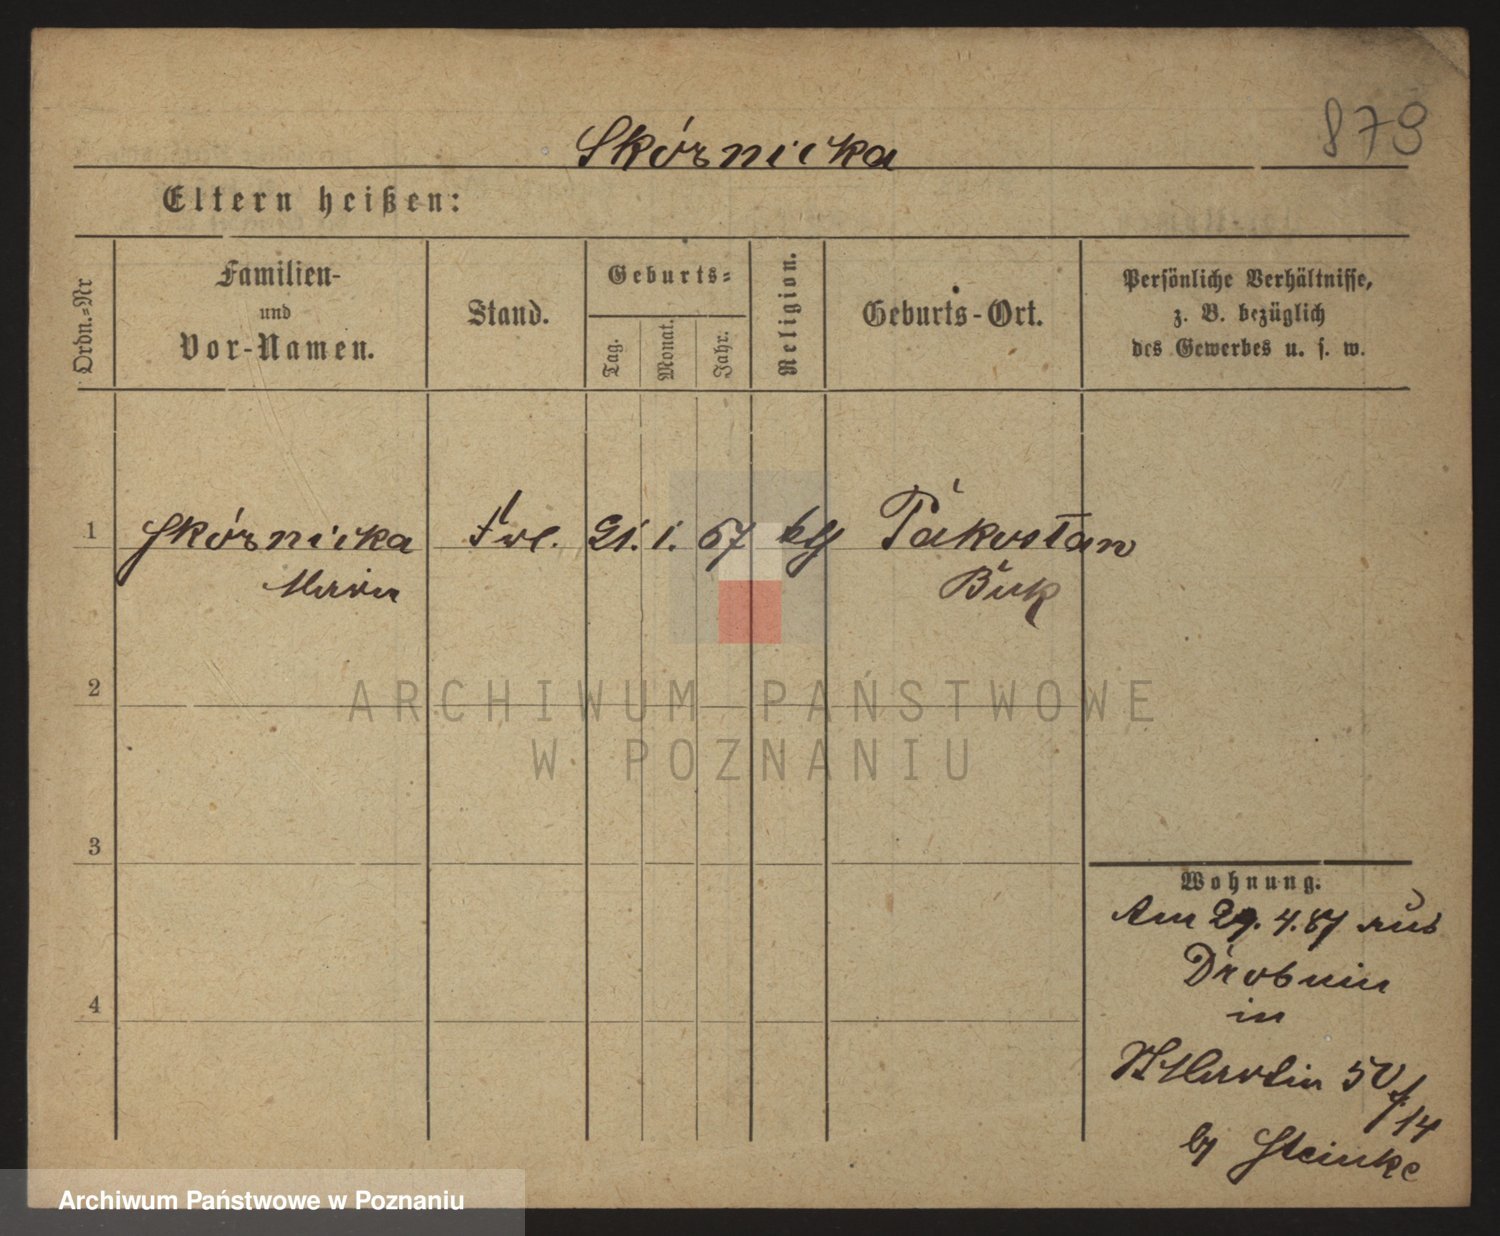 878
Skórnicka
Eltern heißen:
Ordn.-Nr
Familien-
und
Vor-Namen.
Stand.
Geburts-
Tag.
Monat.
Jahr.
Religion.
Geburts-Ort.
Persönliche Verhältnisse,
z. B. bezüglich
des Gewerbes u. s. w.
1 Skórnicka 21. 1. 67 Pakostan
Maria Buk
2
ARCHIWUM PAŃSTWOWE
W POZNANIU
3
Wohnung.
Am 29. 4. 87 aus
Drobnin
in
St Martin 50
14
by Steinke
4
Archiwum Państwowe w Poznaniu